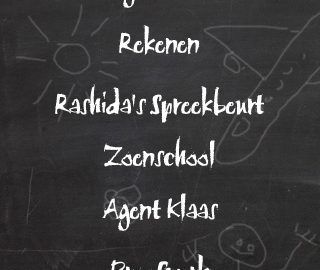 Rekenen
Rashida's Spreekbeurt
Zoenschool
Agent Klaas